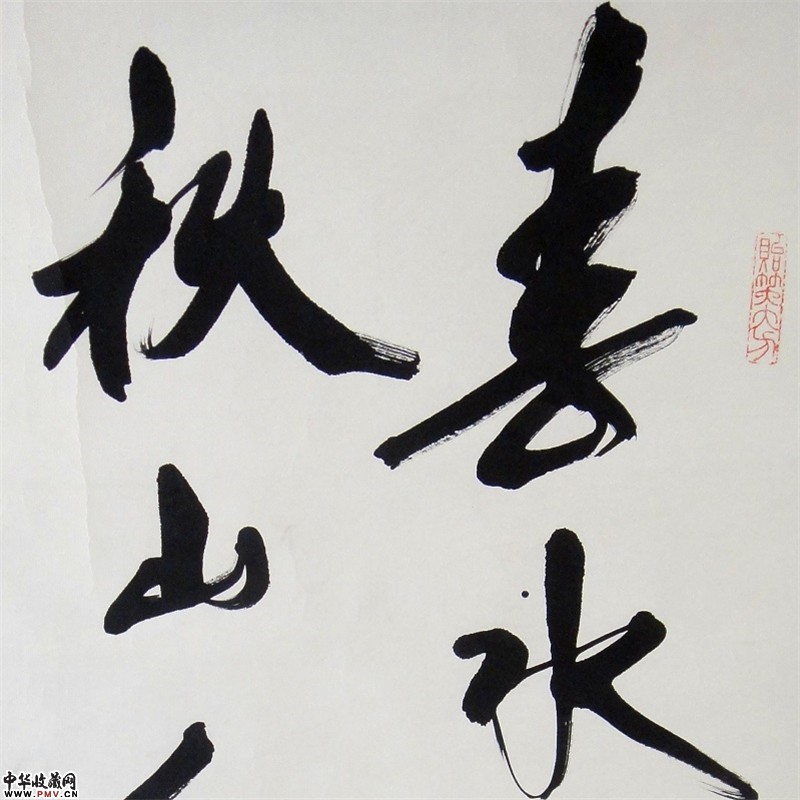 貽笑大方
春水
秋山
中华收藏网
WWW.PMV.CN